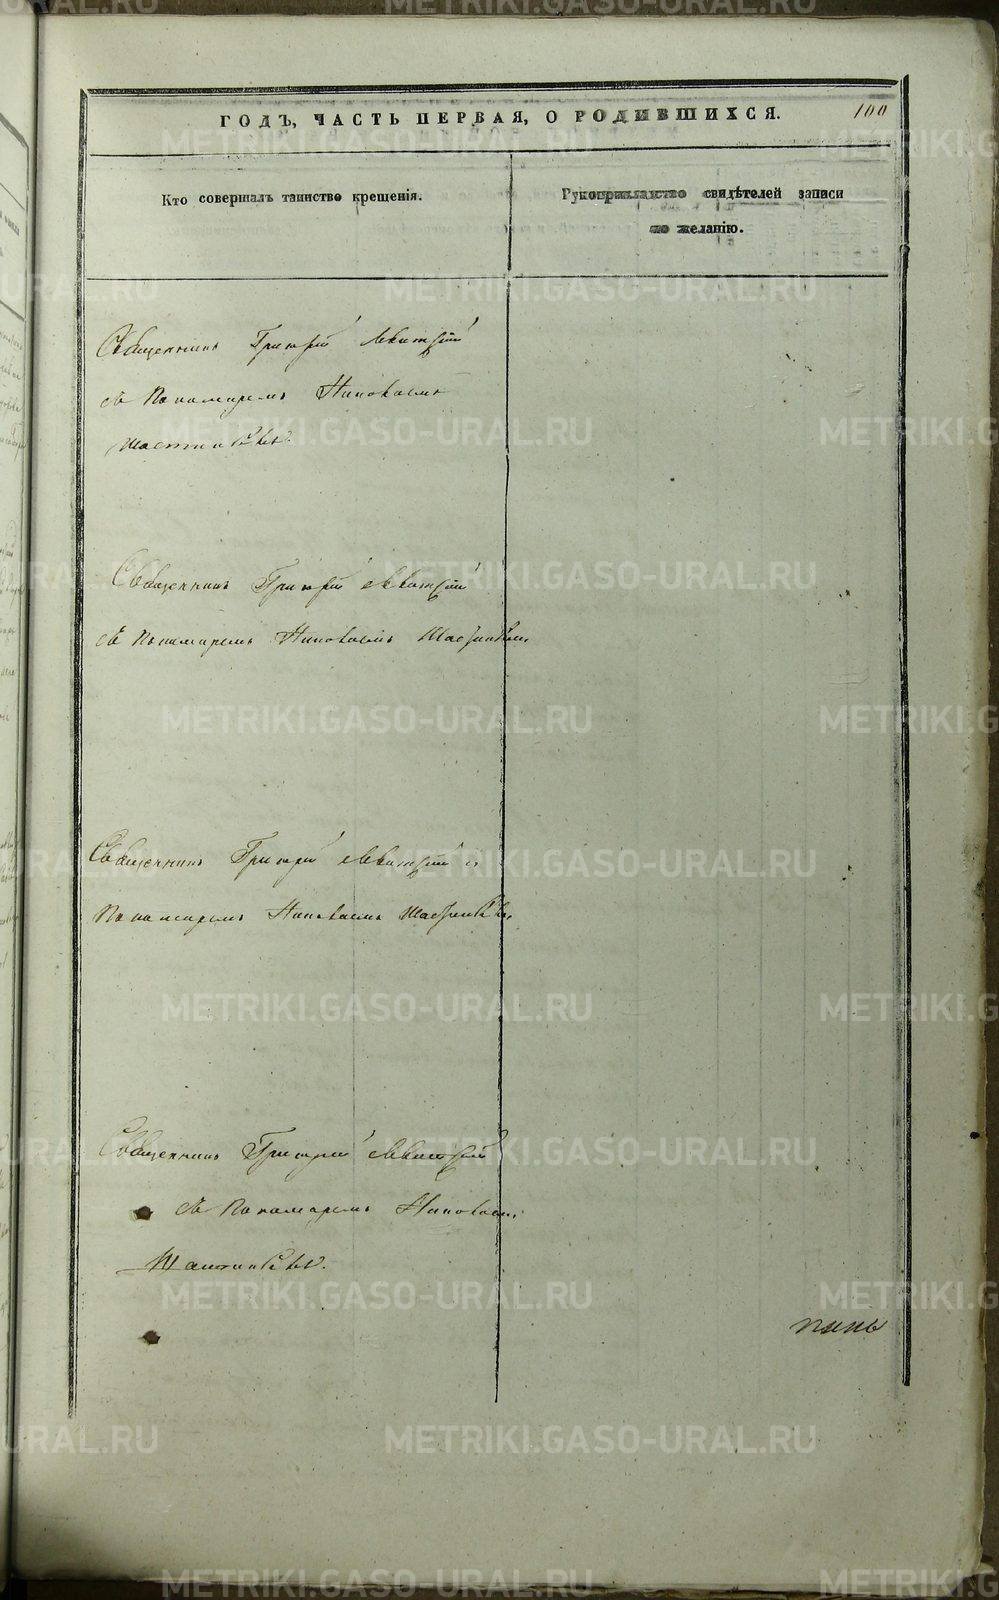 ГОДЪ, ЧАСТЬ ПЕРВАЯ, О РОДИВШИХСЯ. 100
Кто совершалъ таинство крещенія.
Рукоприкладство свидѣтелей записи
по желанію.
Священникъ Григорій Левитскій
съ Пономаремъ Николаемъ
Священникъ Григорій Левитскій
съ Пономаремъ Николаемъ
Священникъ Григорій Левитскій съ
Пономаремъ Николаемъ
Священникъ Григорій Левитскій
съ Пономаремъ Николаемъ
METRIKI.GASO-URAL.RU